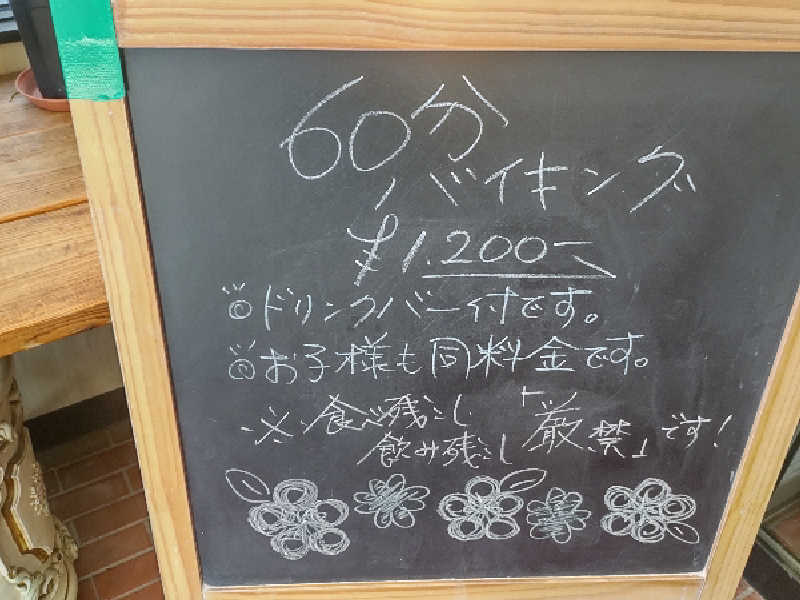 60分
バイキング
¥1.200ー
◎ドリンクバー付です。
◎お子様も同料金です。
※食べ残し
飲み残し「厳禁」です!